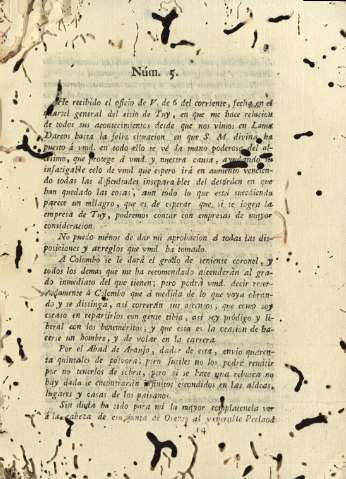 Núm. 5.
He recibido el oficio de V. de 6 del corriente, fecha en el
quartel general del sitio de Tuy, en que me hace relacion
de todos sus acontecimientos desde que nos vimos en Lama
Darcos hasta la feliz situacion, en que S. M. divina ha
puesto á vmd. en todo ello se vé la mano poderosa del al-
tisimo, que protege á vmd. y nuestra causa, ayudando
infatigable celo de vmd que espero irá en aumento vencien-
do todas las dificultades inseparables del desórden en que
han quedado las cosas, aun todo lo que está sucediendo
parece un milagro, que es de esperar que, si se logra la
empresa de Tuy, podremos contar con empresas de mayor
consideracion.
No puedo ménos de dar mi aprobacion á todas las dis-
posiciones y arreglos que vmd ha tomado.
A Colombo se le dará el grado de teniente coronel, y
todos los demas que me ha recomendado ascenderán al gra-
do inmediato del que tienen; pero podrá vmd. decir reser-
vadamente á Colombo que á medida de lo que vaya obran-
do y se distinga, así correrán sus ascensos, que como soy
escaso en repartirlos con gente tibia, asi soy pródigo y li-
beral con los beneméritos; y que esta es la ocasion de ha-
cerse un hombre, y de volar en la carrera.
Por el Abad de Araujo, dador de esta, envio quaren-
ta quintales de pólvora; pero fusiles no los podré remitir
por no tenerlos de sobra, pero si se hace una rebusca no
hay duda se encontrarán infinitos escondidos en las aldeas,
lugares y casas de los paisanos.
Sin duda ha sido para mí la mayor complacencia ver
á la cabeza de esa junta de Orense al venerable Prelado
14